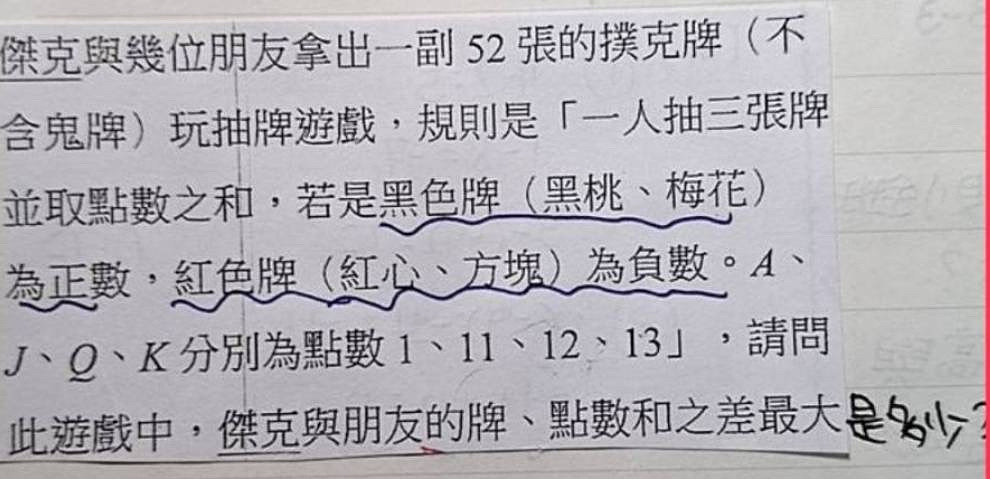 傑克與幾位朋友拿出一副 52 張的撲克牌（不
含鬼牌）玩抽牌遊戲，規則是「一人抽三張牌
並取點數之和，若是黑色牌（黑桃、梅花）
為正數，紅色牌（紅心、方塊）為負數。A、
J、Q、K 分別為點數 1、11、12、13」，請問
此遊戲中，傑克與朋友的牌、點數和之差最大是多少？